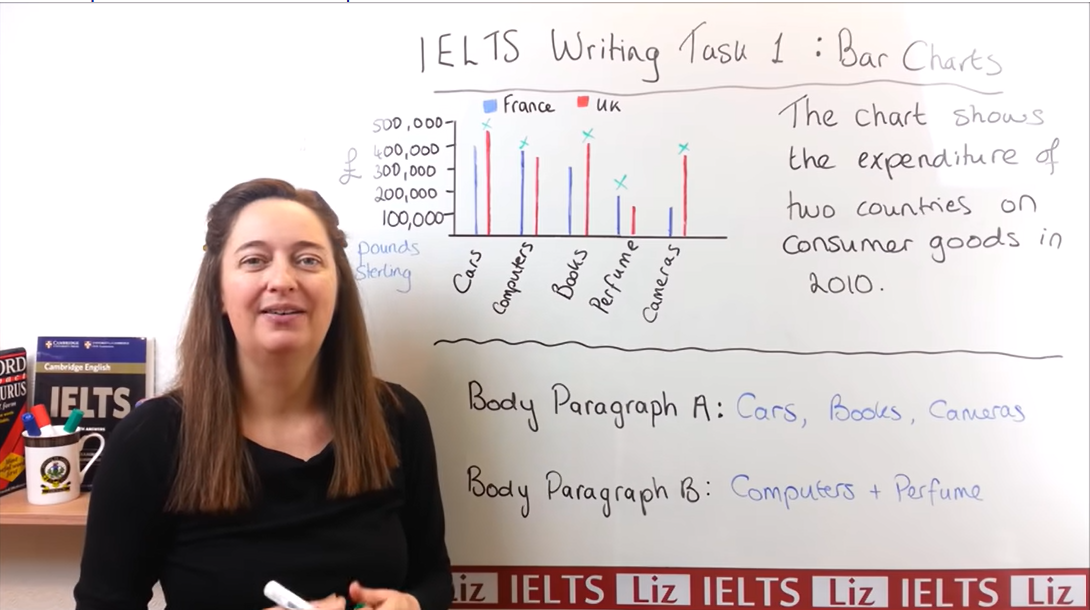 IELTS Writing Task 1 : Bar Charts
France UK
£
500,000
400,000
300,000
200,000
100,000
pounds
sterling
Cars
Computers
Books
Perfume
Cameras
The chart shows
the expenditure of
two countries on
consumer goods in
2010.
Body Paragraph A: Cars, Books, Cameras
Body Paragraph B: Computers + Perfume
Cambridge English
IELTS
Liz IELTS Liz IELTS Liz IELTS Liz